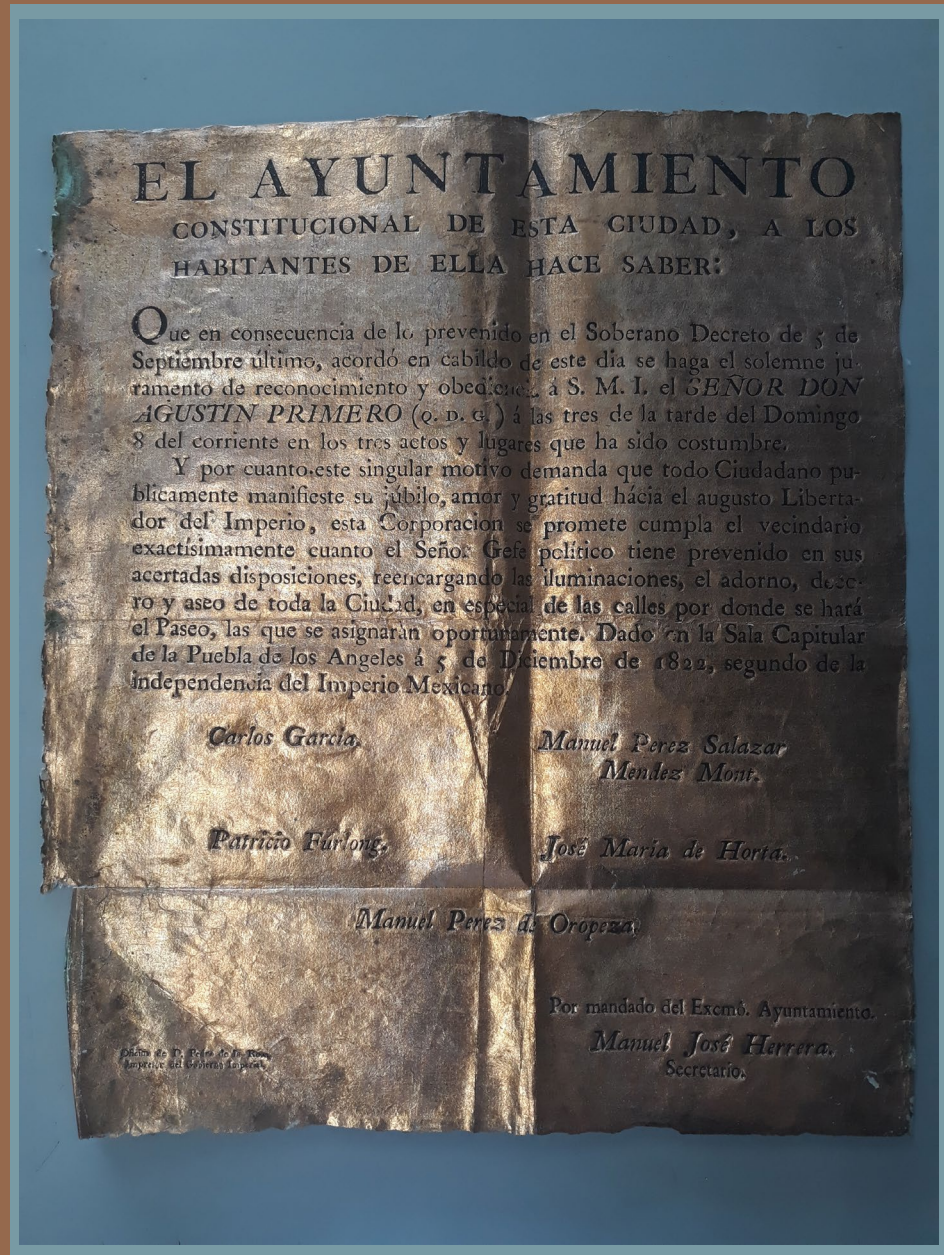 EL AYUNTAMIENTO
CONSTITUCIONAL DE ESTA CIUDAD, A LOS
HABITANTES DE ELLA HACE SABER:
Que en consecuencia de lo prevenido en el Soberano Decreto de 5 de
Septiembre último, acordó en cabildo de este dia se haga el solemne ju-
ramento de reconocimiento y obediencia á S. M. I. el SEÑOR DON
AGUSTIN PRIMERO (Q. D. G.) á las tres de la tarde del Domingo
8 del corriente en los tres actos y lugares que ha sido costumbre.
Y por cuanto este singular motivo demanda que todo Ciudadano pu-
blicamente manifieste su júbilo, amor y gratitud hácia el augusto Liberta-
dor del Imperio, esta Corporacion se promete cumpla el vecindario
exactísimamente cuanto el Señor Gefe político tiene prevenido en sus
acertadas disposiciones, reencargando las iluminaciones, el adorno, deco-
ro y aseo de toda la Ciudad, en especial de las calles por donde se hará
el Paseo, las que se asignarán oportunamente. Dado en la Sala Capitular
de la Puebla de los Angeles á 5 de Diciembre de 1822, segundo de la
independencia del Imperio Mexicano.
Carlos García.
Manuel Perez Salazar
Mendez Mont.
Patricio Fúrlong.
José María de Horta.
Manuel Perez de Oropeza.
Por mandado del Excmô. Ayuntamiento.
Manuel José Herrera.
Secretario.
Oficina de D. Pedro de la Rosa,
Impresor del Gobierno Imperial.